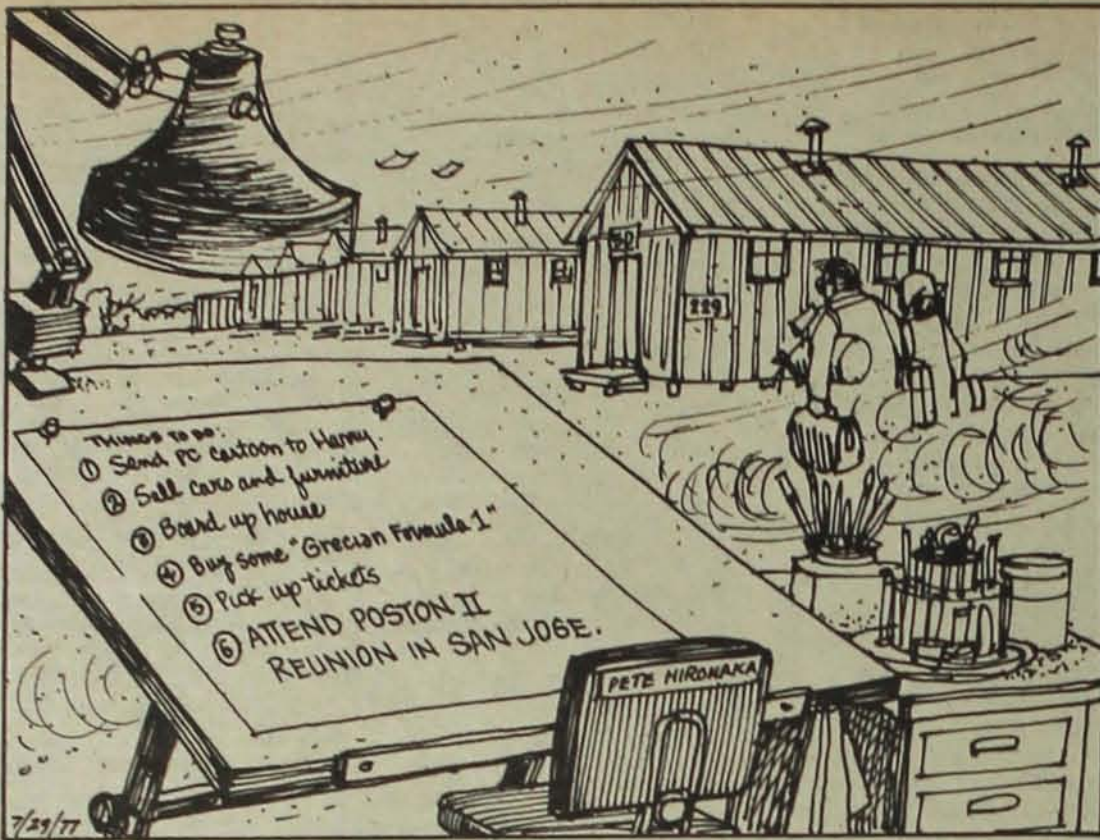 5D
229
THINGS TO DO:
① Send PC cartoon to Harry.
② Sell cars and furniture
③ Board up house
④ Buy some "Grecian Formula 1"
⑤ Pick up tickets
⑥ ATTEND POSTON II
REUNION IN SAN JOSE.
PETE HIRONAKA
7/29/77